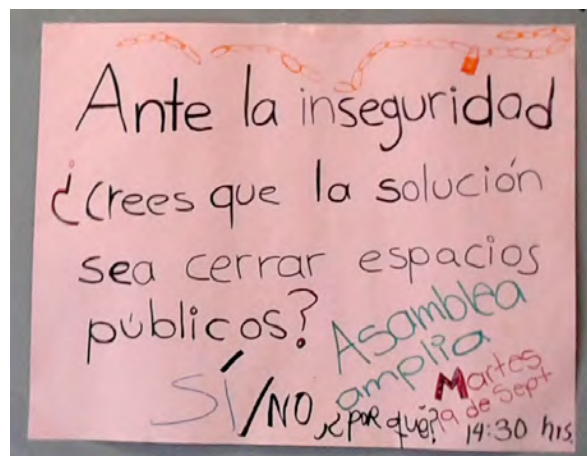 Ante la inseguridad
¿Crees que la solución
sea cerrar espacios
públicos?
Asamblea
amplia
Martes
19 de Sept.
14:30 hrs.
SÍ/NO ¿por qué?